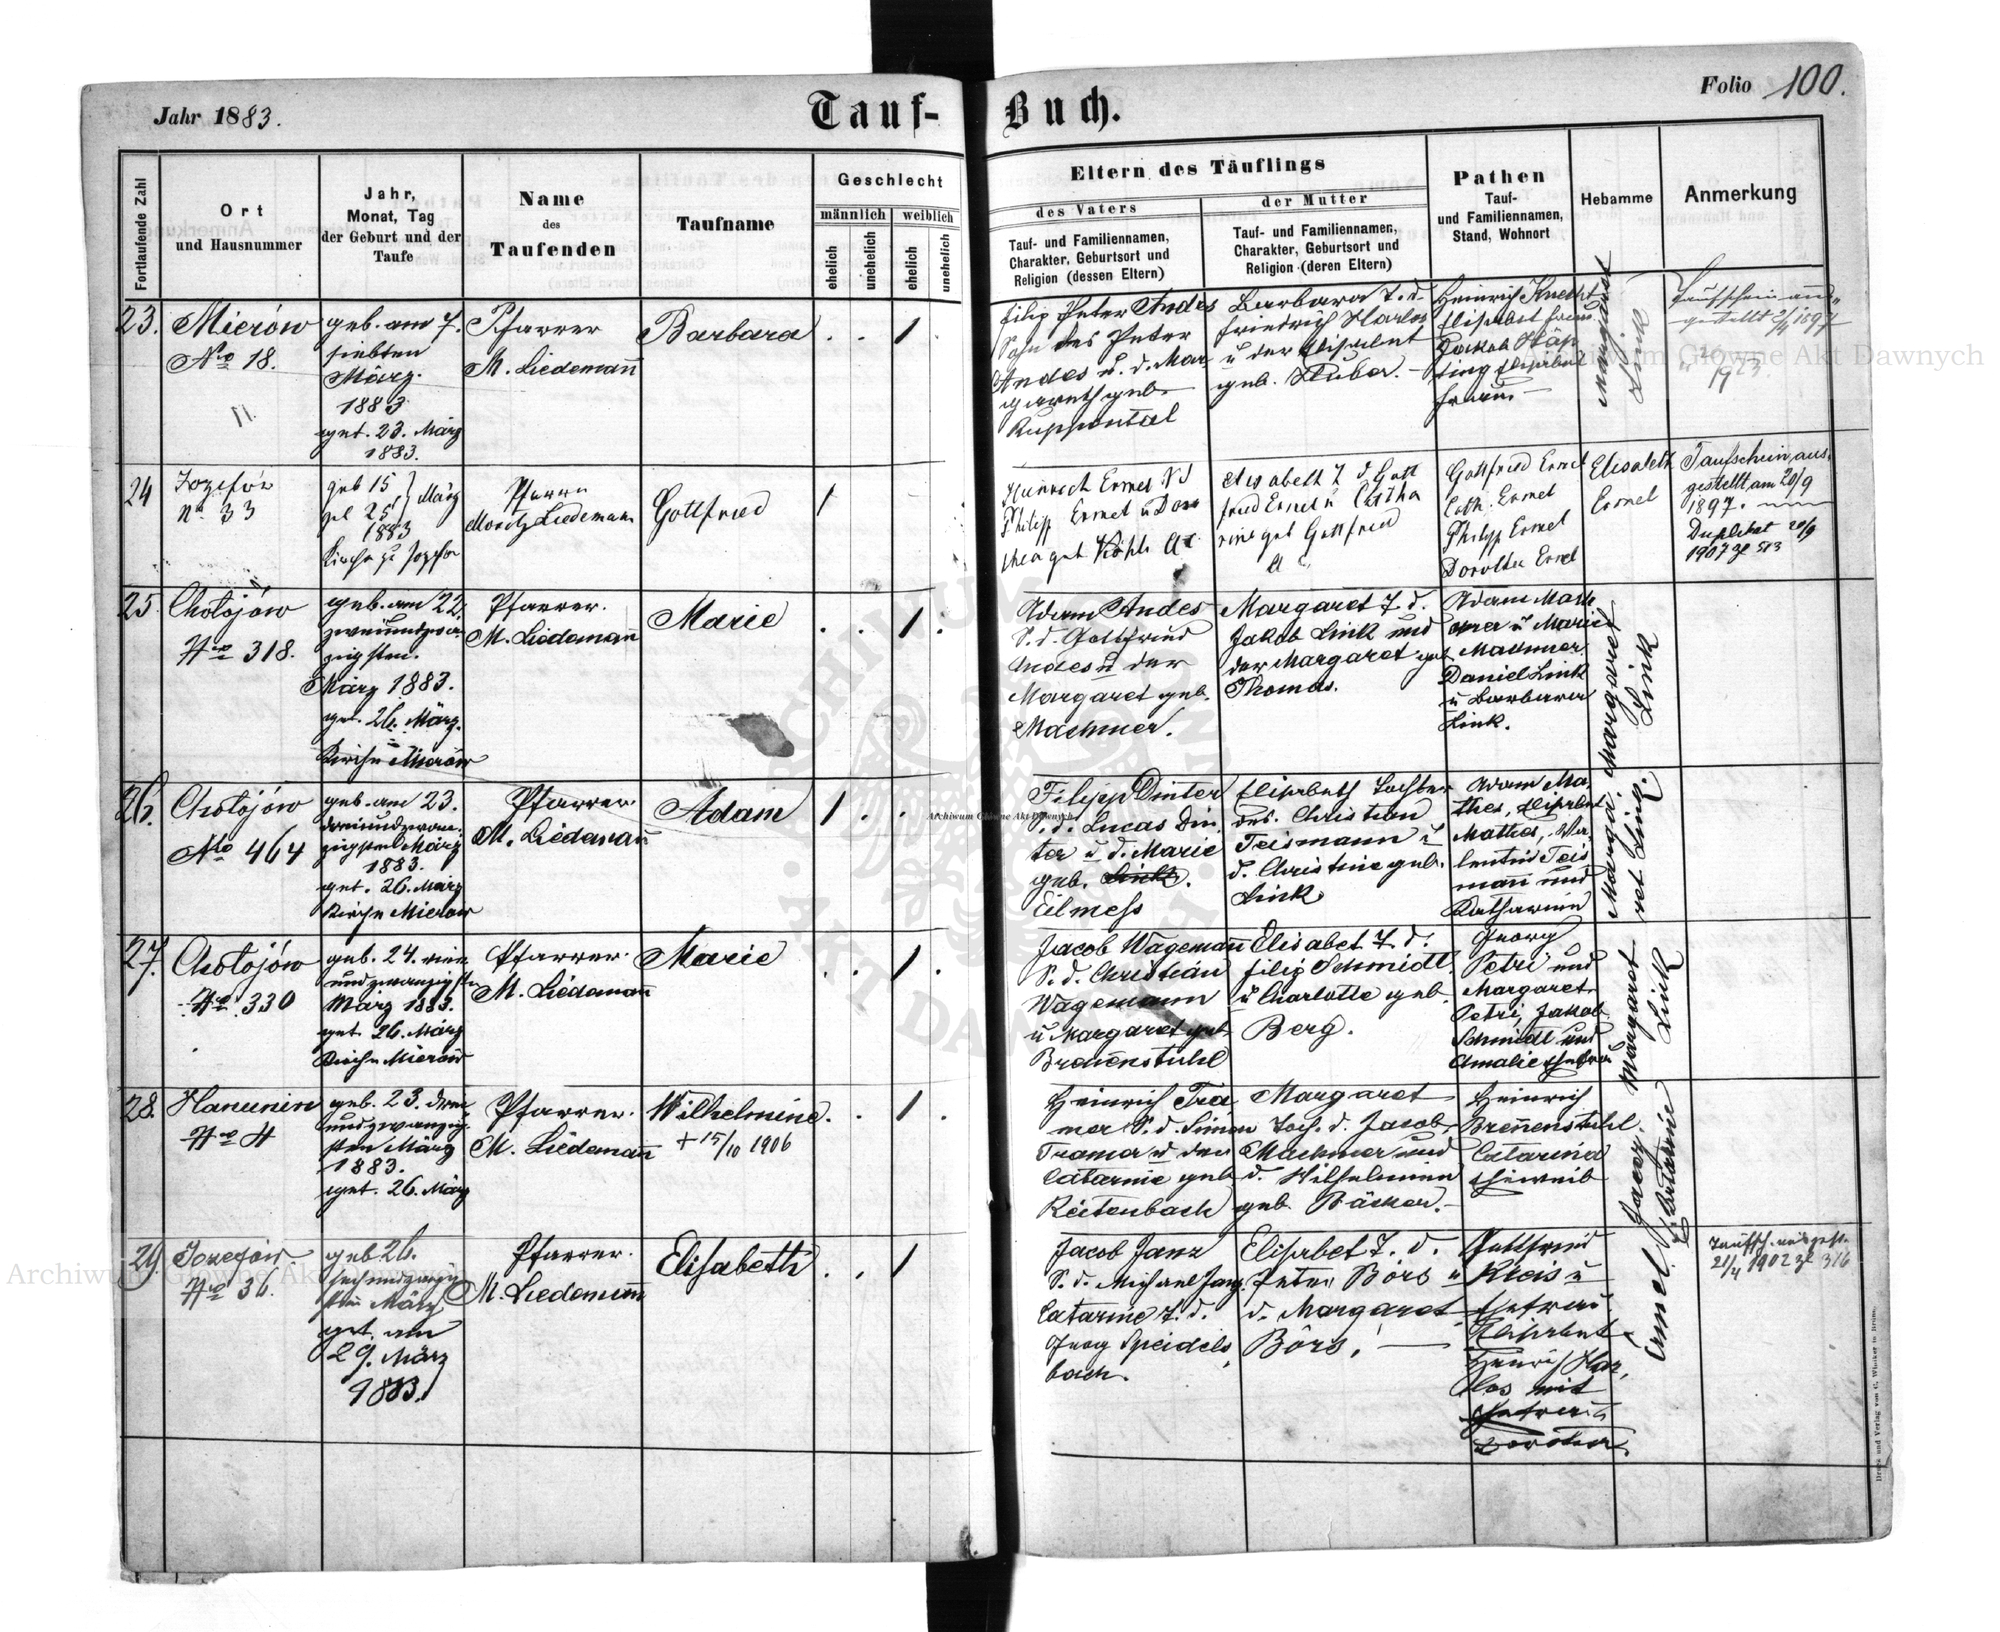 Jahr 1883.
Tauf-Buch.
Folio 100.
Fortlaufende Zahl
Ort
und Hausnummer
Jahr,
Monat, Tag
der Geburt und der
Taufe
Name
des
Taufenden
Taufname
Geschlecht
männlich
weiblich
ehelich
unehelich
ehelich
unehelich
Eltern des Täuflings
des Vaters
der Mutter
Tauf- und Familiennamen,
Charakter, Geburtsort und
Religion (dessen Eltern)
Tauf- und Familiennamen,
Charakter, Geburtsort und
Religion (deren Eltern)
Pathen
Tauf-
und Familiennamen,
Stand, Wohnort
Hebamme
Anmerkung
23.
Mierów
No 18.
geb. am 7.
siebten
März.
1883
get. 23. März
1883.
Pfarrer
M. Liedemann
Barbara
1
Filip Peter Andes
Sohn des Peter
Andes u. d. Mar
gareth geb.
Ruppenthal
Barbara T. d.
Friedrich Harlos
u der Elisabet
geb. Huber.
Heinrich Knecht
Elisabet
Jakob
Margaret
Link
Taufschein aus-
gestellt 2/4 1897
1923
24
Jozefów
No. 33
geb 15
get 25
März
1883
Kirche zu Jozefow
Pfarrer
Moritz Liedemann
Gottfried
1
Heinrich Ermel
Philipp Ermel u Doro
thea geb
Elisabeth T d Gott
fried Ermel u Catha
rine geb Gottfried
Gottfried Ermel
Cath. Ermel
Philipp Ermel
Dorothea Ermel
Elisabeth
Ermel
Taufschein aus-
gestellt am 20/9
1897.
Duplikat 20/9
1907 Zl 513
25
Chołojów
No 318.
geb. am 22.
zweiundzwan
zigsten.
März 1883.
get. 26. März.
Kirche Mierów
Pfarrer.
M. Liedemann
Marie
1
Adam Andes
S. d. Gottfried
Andes u der
Margaret geb.
Machmer.
Margaret T. d.
Jakob Link und
der Margaret geb.
Thomas.
Adam Mach
mer u Marie
Machmer
Daniel Link
u Barbara
Link.
Margaret
Link
26.
Chołojów
No 464
geb. am 23.
dreiundzwan-
zigsten März
1883.
get. 26. März
Kirche Mierow
Pfarrer
M. Liedemann
Adam
1
Filipp Dinter
S. d. Lucas Din
ter u d. Marie
geb. Link.
Eilmess
Elisabeth Tochter
des. Christian
Teismann u
d. Christine geb.
Link
Adam Ma-
thes, Elisabet
Mathes, Va-
lentin Teis
mann und
Katharina
Marga-
ret Link.
27.
Chołojów
No 330
geb. 24. vier
undzwanzigsten
März 1883.
get 26. März
Kirche Mierów
Pfarrer.
M. Liedemann
Marie
1
Jacob Wagemann
S. d. Christian
Wagemann
u Margaret geb
Brennenstuhl
Elisabet T. d.
Filip Schmidt
u Charlotte geb.
Berg.
Georg
Petri und
Margaret
Petri, Jakob
Schmidt und
Amalie Ehefrau
Margaret
Link
28.
Hanunin
No 4
geb. 23. drei
undzwanzig
sten März
1883.
get. 26. März
Pfarrer.
M. Liedemann
Wilhelmine.
+ 15/10 1906
1
Heinrich Tra
mer S. d. Simon
Tramer u der
Catarine geb
Reitenbach
Margaret
Toch. d. Jacob
Machmer und
d. Wilhelmine
geb. Bäcker.
Heinrich
Brennenstuhl
Catarina
Eheweib
Catarine
29.
Jozefów
No 36.
geb 26.
sechsundzwanzig
sten März
get. am
29. März
1883.
Pfarrer.
M. Liedemann
Elisabeth
1
Jacob Janz
S. d. Michael Janz
Catarine T. d.
Georg Speidels
bach.
Elisabet T. d.
Peter Börs u
d. Margaret
Börs.
Gottfried
Kreis u
Ehefrau
Elisabet
Heinrich Har
los mit
Ehefrau
Dorothea
Ermel
Taufsch. ausgest.
21/4 1902 Zl 316
Druck und Verlag von C. Winiker in Brünn.
Archiwum Główne Akt Dawnych
Archiwum Główne Akt Dawnych
Archiwum Główne Akt Dawnych
ARCHIWUM GŁÓWNE AKT DAWNYCH